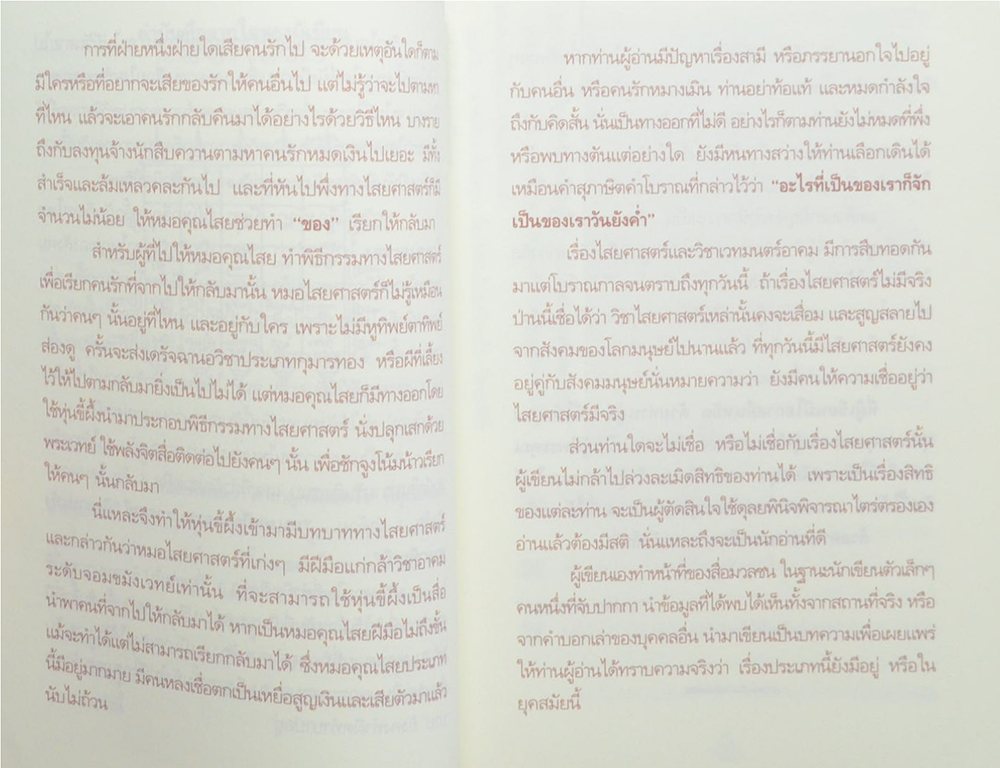 การที่ฝ่ายหนึ่งฝ่ายใดเสียคนรักไป จะด้วยเหตุอันใดก็ตาม
มีใครหรือที่อยากจะเสียของรักให้คนอื่นไป แต่ไม่รู้ว่าจะไปตามหา
ที่ไหน แล้วจะเอาคนรักกลับคืนมาได้อย่างไรด้วยวิธีไหน บางราย
ถึงกับลงทุนจ้างนักสืบควานตามหาคนรักหมดเงินไปเยอะ มีทั้ง
สำเร็จและล้มเหลวคละกันไป และที่หันไปพึ่งทางไสยศาสตร์ก็มี
จำนวนไม่น้อย ให้หมอคุณไสยช่วยทำ “ของ” เรียกให้กลับมา
สำหรับผู้ที่ไปให้หมอคุณไสย ทำพิธีกรรมทางไสยศาสตร์
เพื่อเรียกคนรักที่จากไปให้กลับมานั้น หมอไสยศาสตร์ก็ไม่รู้เหมือน
กันว่าคนๆ นั้นอยู่ที่ไหน และอยู่กับใคร เพราะไม่มีหูทิพย์ตาทิพย์
ส่องดู ครั้นจะส่งเดรัจฉานอวิชาประเภทกุมารทอง หรือผีที่เลี้ยง
ไว้ให้ไปตามกลับมายิ่งเป็นไปไม่ได้ แต่หมอคุณไสยก็มีทางออกโดย
ใช้หุ่นขี้ผึ้งนำมาประกอบพิธีกรรมทางไสยศาสตร์ นั่งปลุกเสกด้วย
พระเวทย์ ใช้พลังจิตสื่อติดต่อไปยังคนๆ นั้น เพื่อชักจูงโน้มน้าวเรียก
ให้คนๆ นั้นกลับมา
นี่แหละจึงทำให้หุ่นขี้ผึ้งเข้ามามีบทบาททางไสยศาสตร์
และกล่าวกันว่าหมอไสยศาสตร์ที่เก่งๆ มีฝีมือแก่กล้าวิชาอาคม
ระดับจอมขมังเวทย์เท่านั้น ที่จะสามารถใช้หุ่นขี้ผึ้งเป็นสื่อ
นำพาคนที่จากไปให้กลับมาได้ หากเป็นหมอคุณไสยฝีมือไม่ถึงขั้น
แม้จะทำได้แต่ไม่สามารถเรียกกลับมาได้ ซึ่งหมอคุณไสยประเภท
นี้มีอยู่มากมาย มีคนหลงเชื่อตกเป็นเหยื่อสูญเงินและเสียตัวมาแล้ว
นับไม่ถ้วน
หากท่านผู้อ่านมีปัญหาเรื่องสามี หรือภรรยานอกใจไปอยู่
กับคนอื่น หรือคนรักหมางเมิน ท่านอย่าท้อแท้ และหมดกำลังใจ
ถึงกับคิดสั้น นั่นเป็นทางออกที่ไม่ดี อย่างไรก็ตามท่านยังไม่หมดที่พึ่ง
หรือพบทางตันแต่อย่างใด ยังมีหนทางสว่างให้ท่านเลือกเดินได้
เหมือนคำสุภาษิตคำโบราณที่กล่าวไว้ว่า “อะไรที่เป็นของเราก็จัก
เป็นของเราวันยังค่ำ”
เรื่องไสยศาสตร์และวิชาเวทมนตร์อาคม มีการสืบทอดกัน
มาแต่โบราณกาลจนตราบถึงทุกวันนี้ ถ้าเรื่องไสยศาสตร์ไม่มีจริง
ป่านนี้เชื่อได้ว่า วิชาไสยศาสตร์เหล่านั้นคงจะเสื่อม และสูญสลายไป
จากสังคมของโลกมนุษย์ไปนานแล้ว ที่ทุกวันนี้มีไสยศาสตร์ยังคง
อยู่คู่กับสังคมมนุษย์นั่นหมายความว่า ยังมีคนให้ความเชื่ออยู่ว่า
ไสยศาสตร์มีจริง
ส่วนท่านใดจะไม่เชื่อ หรือไม่เชื่อกับเรื่องไสยศาสตร์นั้น
ผู้เขียนไม่กล้าไปล่วงละเมิดสิทธิของท่านได้ เพราะเป็นเรื่องสิทธิ
ของแต่ละท่าน จะเป็นผู้ตัดสินใจใช้ดุลยพินิจพิจารณาไตร่ตรองเอง
อ่านแล้วต้องมีสติ นั่นแหละถึงจะเป็นนักอ่านที่ดี
ผู้เขียนเองทำหน้าที่ของสื่อมวลชน ในฐานะนักเขียนตัวเล็กๆ
คนหนึ่งที่จับปากกา นำข้อมูลที่ได้พบได้เห็นทั้งจากสถานที่จริง หรือ
จากคำบอกเล่าของบุคคลอื่น นำมาเขียนเป็นบทความเพื่อเผยแพร่
ให้ท่านผู้อ่านได้ทราบความจริงว่า เรื่องประเภทนี้ยังมีอยู่ หรือใน
ยุคสมัยนี้